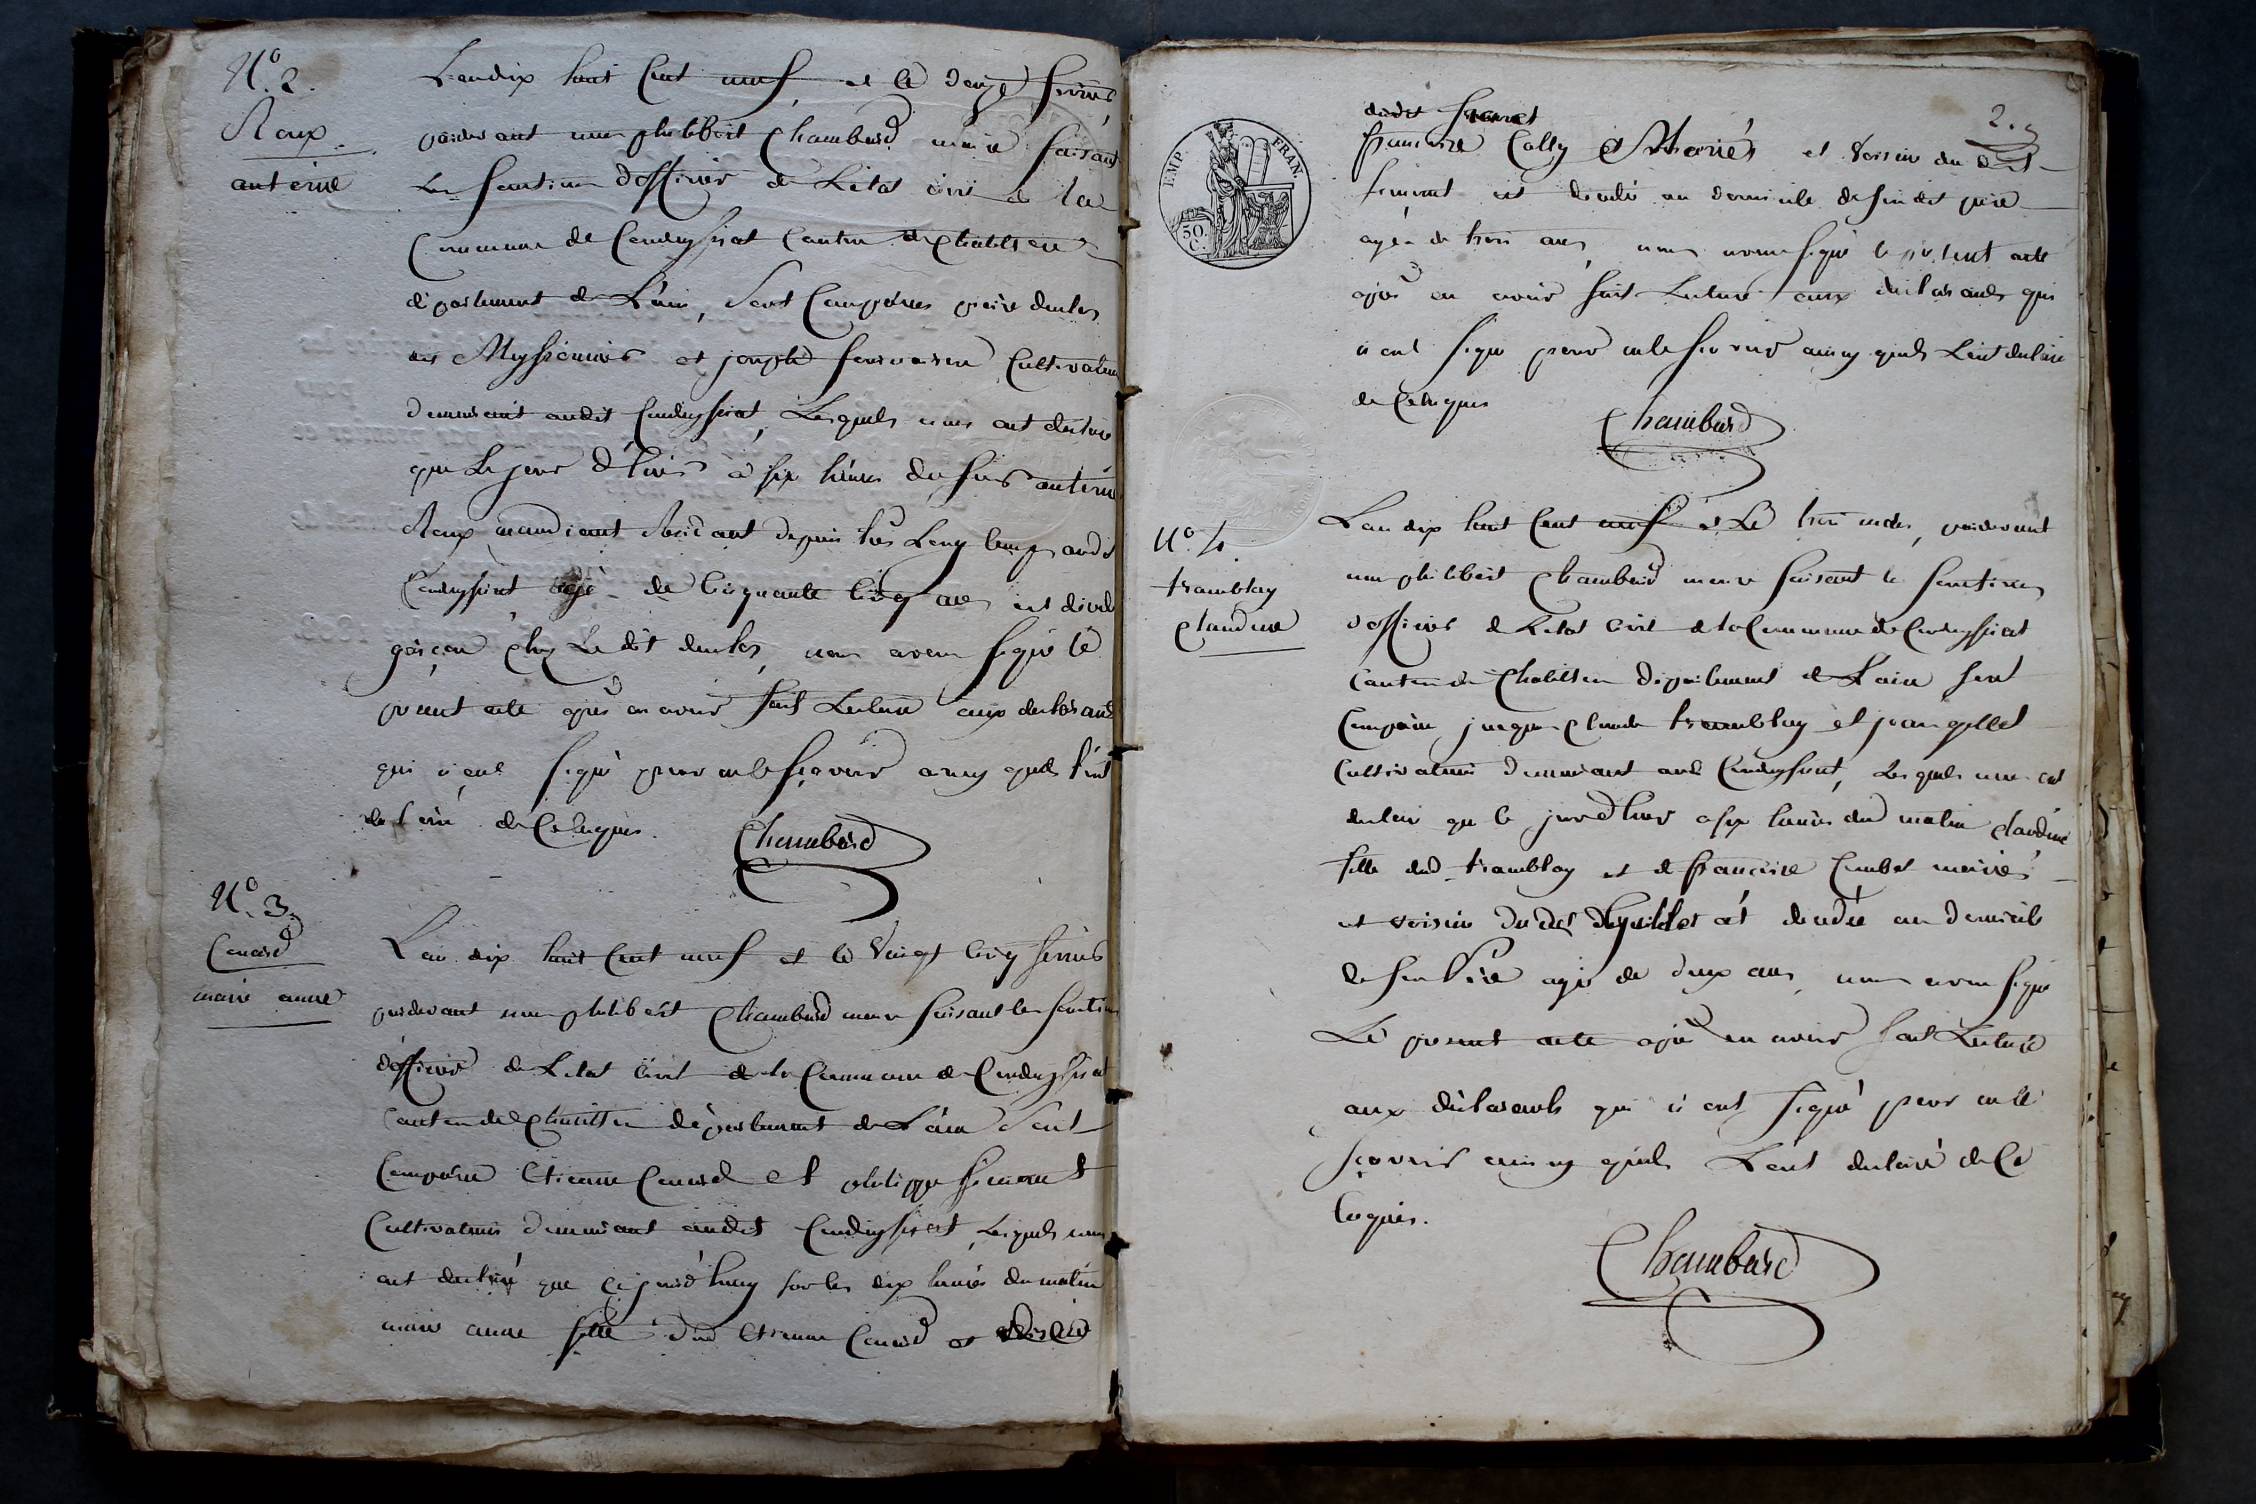 N.º 2.
Roux
anterne
L'an dix huit Cent neuf et le douze fevrier
pardevant nous philibert Chambard maire faisant
Les fonctions d'officier de L'etat civil de la
Commune de Condeyssiat Canton de Chatillon
département de L'ain, Sont Comparus pierre
et joseph Cultivateurs
demeurant audit Condeyssiat, Lesquels nous ont declaré
que Le jour d'hier à six heures du soir anterne
Roux mandiant Residant depuis très Long temps audit
Condeyssiat agé de Cinquante Cinq ans est décédé
garçon chez Le dit nous avons signé le
présent acte après en avoir fait Lecture aux declarants
qui n'ont signé pour ne le sçavoir ainsy quils l'ont
declaré de Ce Requis.
Chambard
N.º 3.
Conard
marie anne
L'an dix huit Cent neuf et le Vingt Cinq fevrier
pardevant nous philibert Chambard maire faisant les fonctions
d'officier de L'etat Civil de la Commune de Condeyssiat
Canton de Chatillon département de L'ain Sont
Comparu Etienne Conard et philippe fement
Cultivateurs demeurant audit Condeyssiat Lesquels nous
ont declaré que Cejourd'huy sur les dix heures du matin
marie anne fille dud Etienne Conard et
EMP. FRAN.
50. C.
2.
françoise Colly Mariés et Voisin du dit
fement est décédée au domicile de son dit père
agée de trois ans, nous avons signé le présent acte
après en avoir fait Lecture aux declarants qui
n'ont signé pour ne le sçavoir ainsy quils L'ont declaré
de Ce requis
Chambard
N.º 4.
tramblay
Claudine
L'an dix huit Cent neuf et Le trois mars, pardevant
nous philibert Chambard maire faisant les fonctions
d'officier de L'etat Civil de la Commune de Condeyssiat
Canton de Chatillon département de L'ain Sont
Comparu jacque Claude tramblay et jean gillet
Cultivateurs demeurant aud Condeyssiat, Lesquels nous ont
declaré que le jour d'hier a six heures du matin Claudine
fille dud tramblay et de françoise Combet mariés
et voisin du dit gillet est décédée au domicile
de son Père agée de deux ans, nous avons signé
Le présent acte après en avoir fait Lecture
aux déclarants qui n'ont signé pour ne le
sçavoir ainsy quils L'ont declaré de Ce
requis.
Chambard